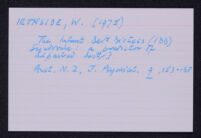 IRONSIDE, W. (1975)
The Infant Bed Distress (IBD)
Syndrome: a predictor of
impaired
Aust. N.Z. J. Psychiat. 9, 153-158